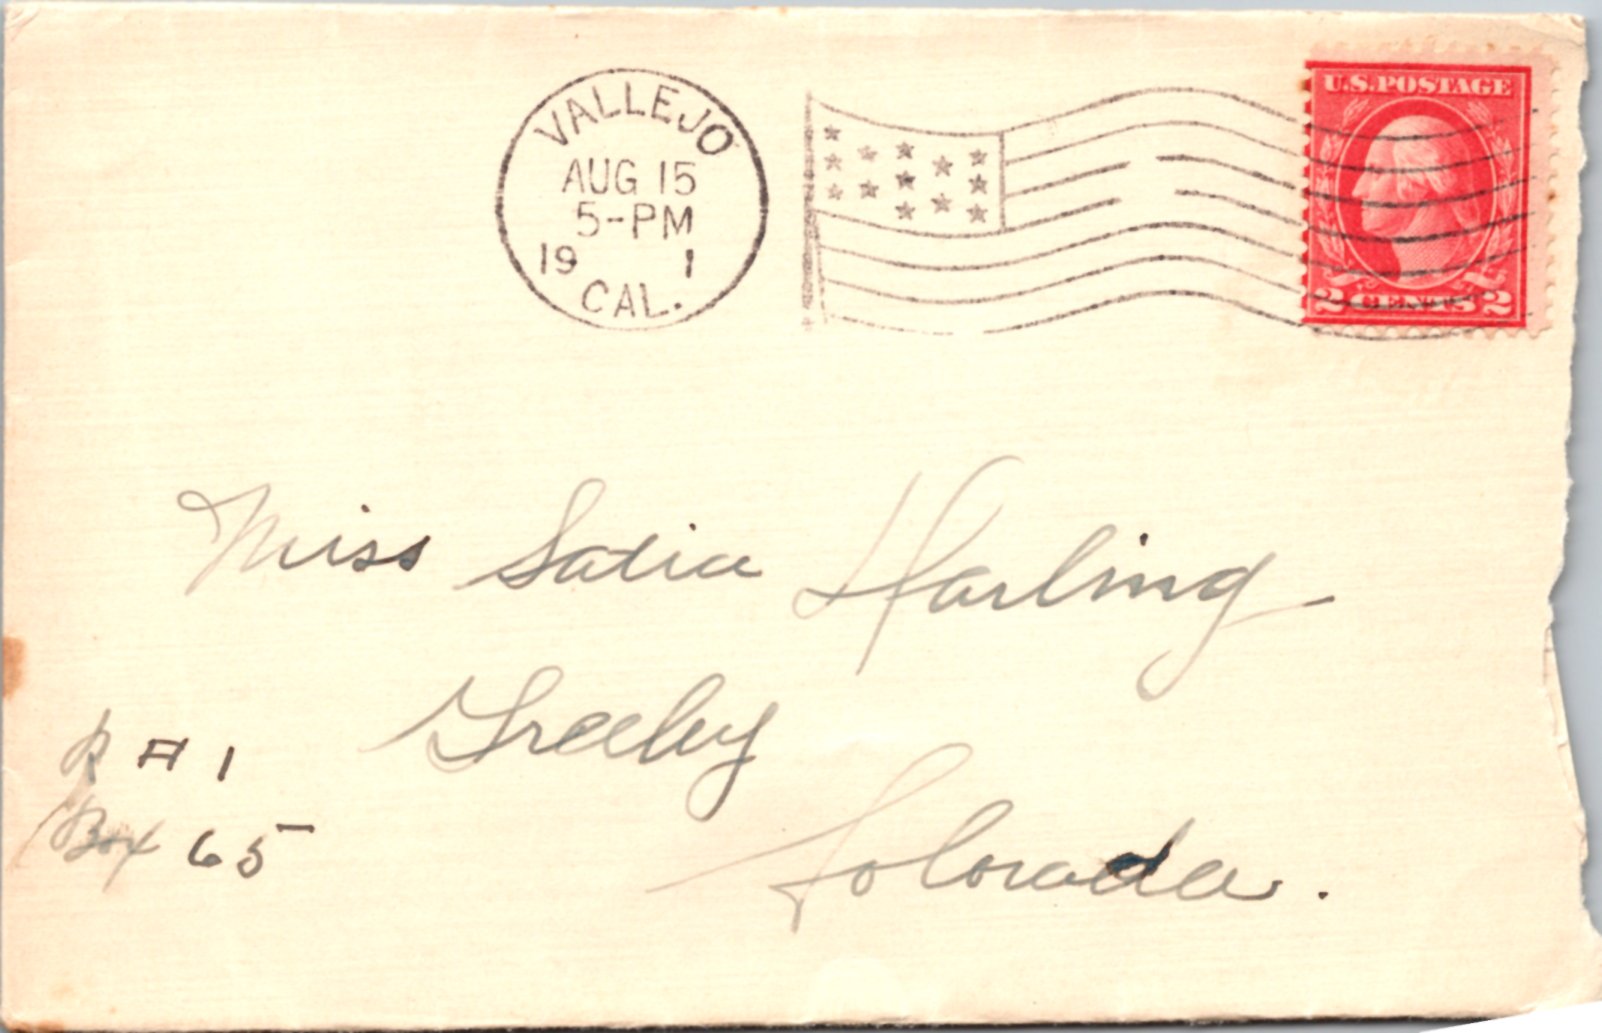 VALLEJO
AUG 15
5-PM
19 1
CAL.
U.S. POSTAGE
2 CENTS 2
Miss Satia Harling
Greeley
Colorado.
R # 1
Box 65